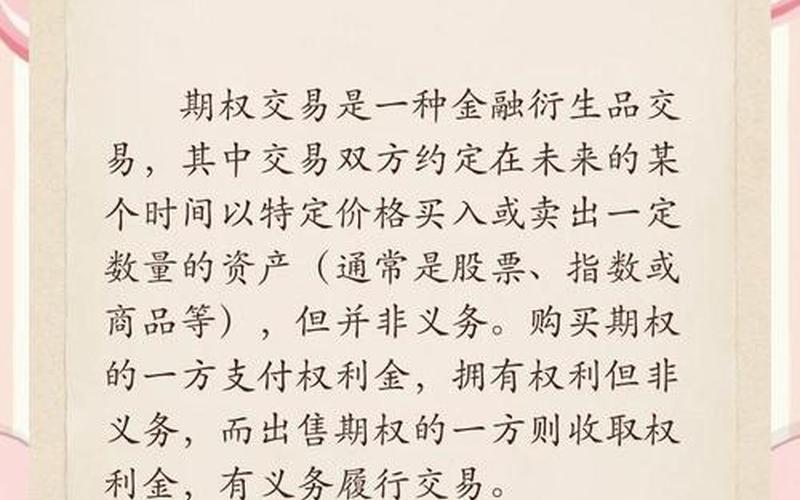 期权交易是一种金融衍生品交
易，其中交易双方约定在未来的某
个时间以特定价格买入或卖出一定
数量的资产（通常是股票、指数或
商品等），但并非义务。购买期权
的一方支付权利金，拥有权利但非
义务，而出售期权的一方则收取权
利金，有义务履行交易。